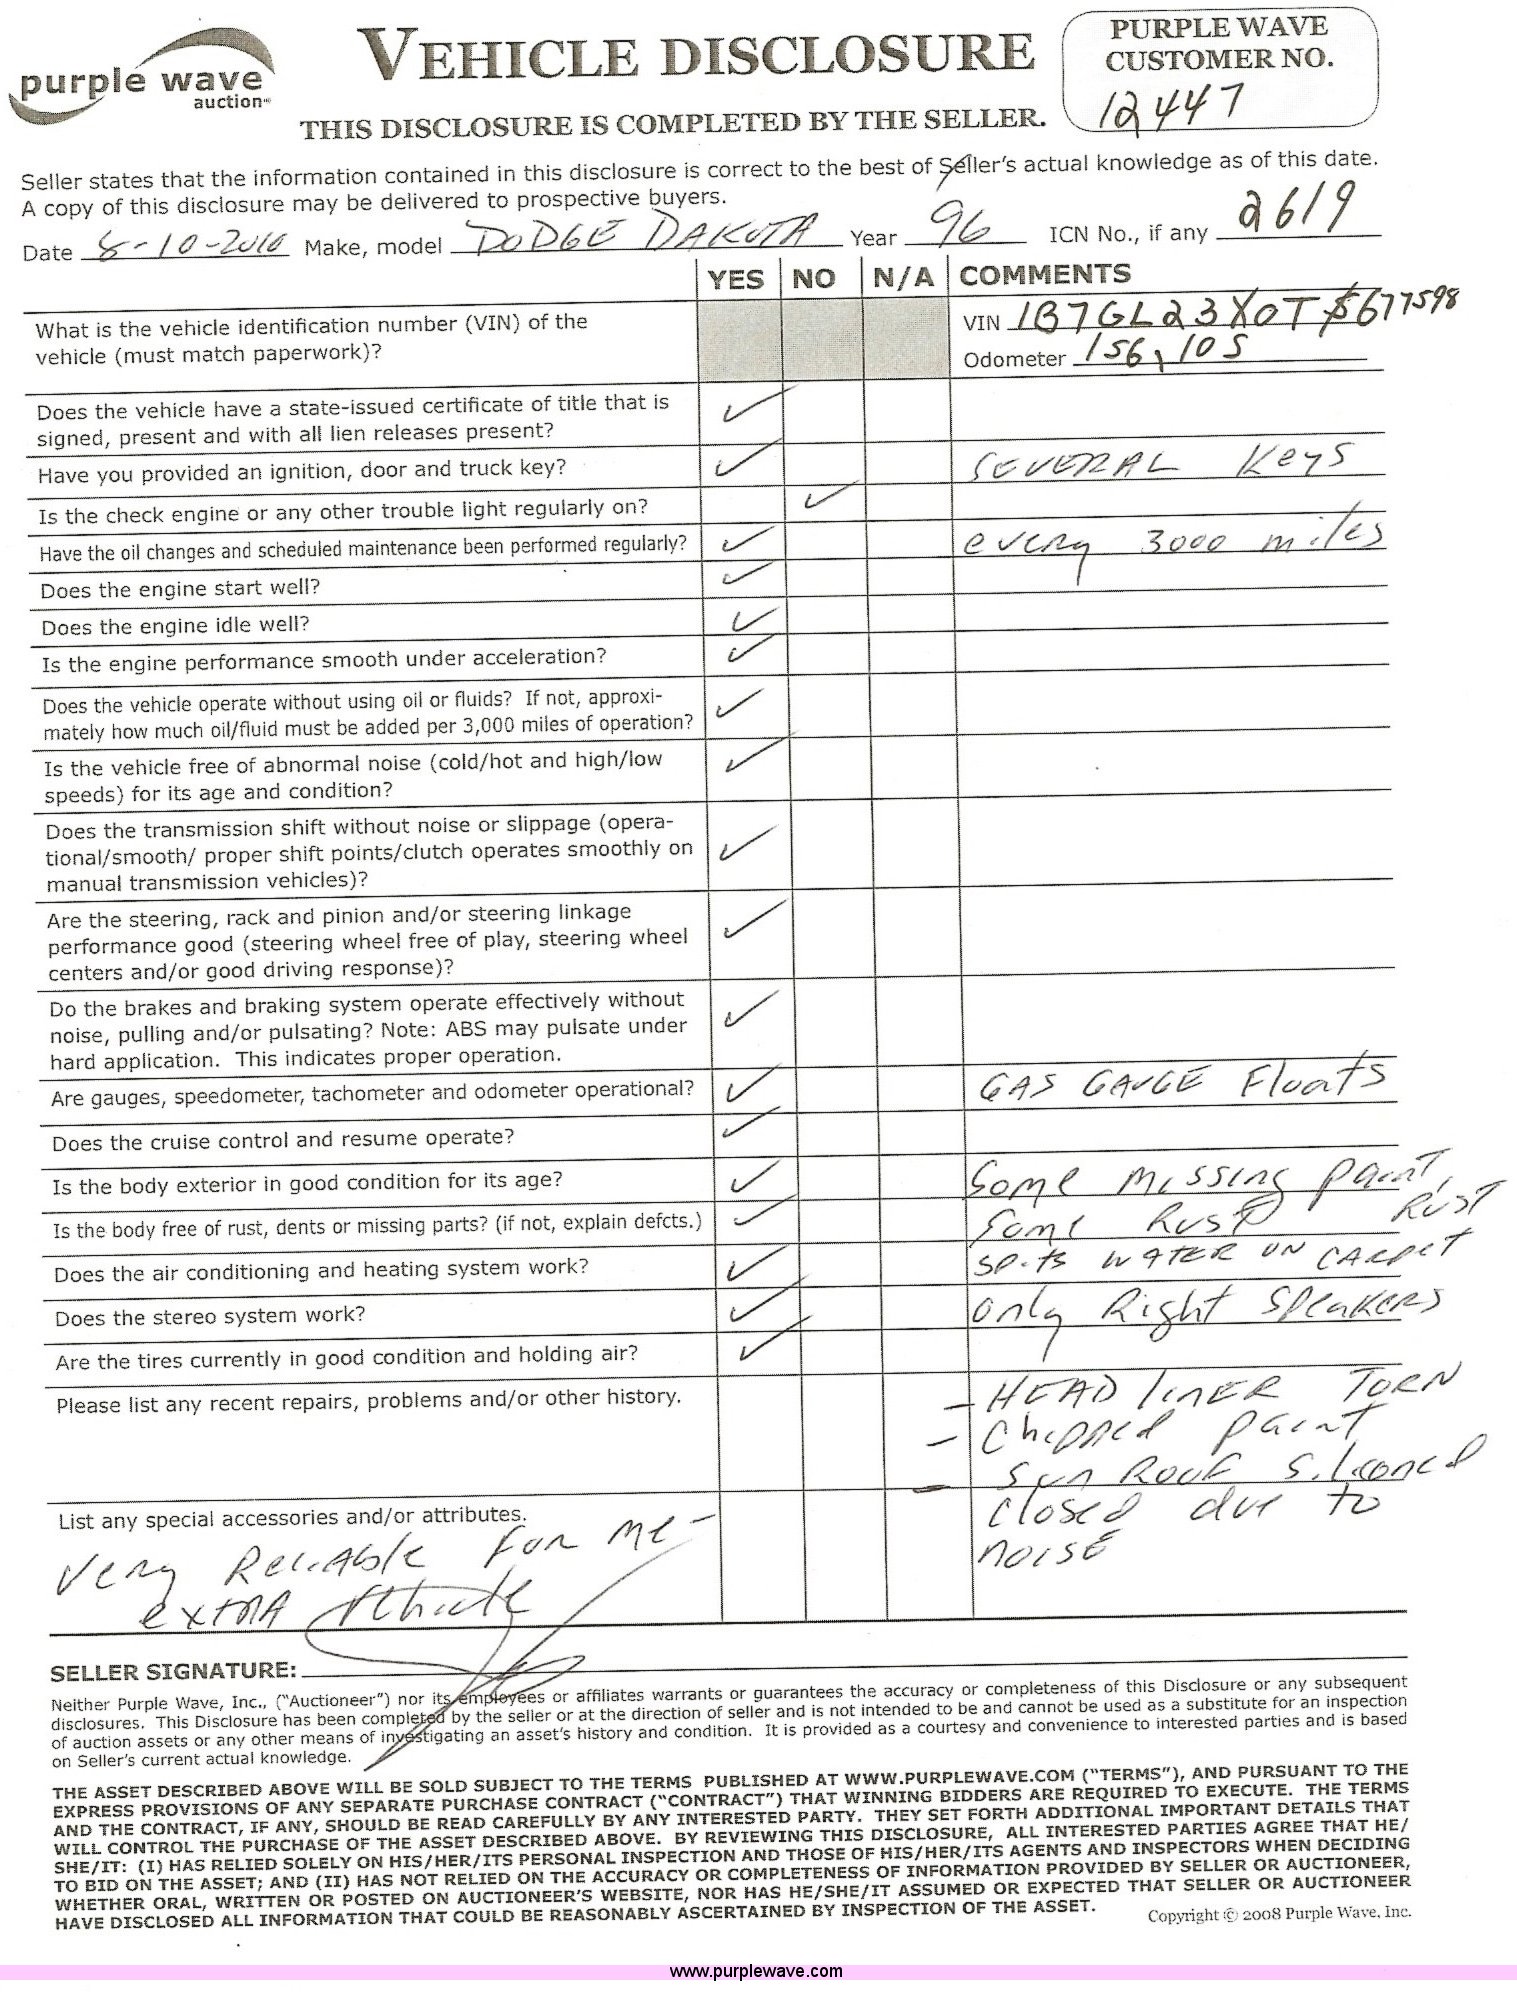 purple wave
auction
VEHICLE DISCLOSURE
THIS DISCLOSURE IS COMPLETED BY THE SELLER.
PURPLE WAVE
CUSTOMER NO.
12447
Seller states that the information contained in this disclosure is correct to the best of Seller's actual knowledge as of this date.
A copy of this disclosure may be delivered to prospective buyers.
Date 8-10-2010 Make, model DODGE DAKOTA Year 96 ICN No., if any 2619
YES NO N/A COMMENTS
What is the vehicle identification number (VIN) of the
vehicle (must match paperwork)?
VIN 1B7GL23X0T$677598
Odometer 156,105
Does the vehicle have a state-issued certificate of title that is
signed, present and with all lien releases present? ✓
Have you provided an ignition, door and truck key? ✓ SEVERAL Keys
Is the check engine or any other trouble light regularly on? ✓
Have the oil changes and scheduled maintenance been performed regularly? ✓ every 3000 miles
Does the engine start well? ✓
Does the engine idle well? ✓
Is the engine performance smooth under acceleration? ✓
Does the vehicle operate without using oil or fluids? If not, approxi-
mately how much oil/fluid must be added per 3,000 miles of operation? ✓
Is the vehicle free of abnormal noise (cold/hot and high/low
speeds) for its age and condition? ✓
Does the transmission shift without noise or slippage (opera-
tional/smooth/ proper shift points/clutch operates smoothly on
manual transmission vehicles)? ✓
Are the steering, rack and pinion and/or steering linkage
performance good (steering wheel free of play, steering wheel
centers and/or good driving response)? ✓
Do the brakes and braking system operate effectively without
noise, pulling and/or pulsating? Note: ABS may pulsate under
hard application. This indicates proper operation. ✓
Are gauges, speedometer, tachometer and odometer operational? ✓ GAS GAUGE Floats
Does the cruise control and resume operate? ✓
Is the body exterior in good condition for its age? ✓ Some missing paint,
Is the body free of rust, dents or missing parts? (if not, explain defcts.) ✓ Some Rust RUST
Does the air conditioning and heating system work? ✓ spots WATER ON CARPET
Does the stereo system work? ✓ only Right speakers
Are the tires currently in good condition and holding air? ✓
Please list any recent repairs, problems and/or other history.
- HEADliner TORN
- Chipped paint
- Sun Roof siliconed
closed due to
noise
List any special accessories and/or attributes.
Very Reliable for me -
extra vehicle
SELLER SIGNATURE:
Neither Purple Wave, Inc., ("Auctioneer") nor its employees or affiliates warrants or guarantees the accuracy or completeness of this Disclosure or any subsequent
disclosures. This Disclosure has been completed by the seller or at the direction of seller and is not intended to be and cannot be used as a substitute for an inspection
of auction assets or any other means of investigating an asset's history and condition. It is provided as a courtesy and convenience to interested parties and is based
on Seller's current actual knowledge.
THE ASSET DESCRIBED ABOVE WILL BE SOLD SUBJECT TO THE TERMS PUBLISHED AT WWW.PURPLEWAVE.COM ("TERMS"), AND PURSUANT TO THE
EXPRESS PROVISIONS OF ANY SEPARATE PURCHASE CONTRACT ("CONTRACT") THAT WINNING BIDDERS ARE REQUIRED TO EXECUTE. THE TERMS
AND THE CONTRACT, IF ANY, SHOULD BE READ CAREFULLY BY ANY INTERESTED PARTY. THEY SET FORTH ADDITIONAL IMPORTANT DETAILS THAT
WILL CONTROL THE PURCHASE OF THE ASSET DESCRIBED ABOVE. BY REVIEWING THIS DISCLOSURE, ALL INTERESTED PARTIES AGREE THAT HE/
SHE/IT: (I) HAS RELIED SOLELY ON HIS/HER/ITS PERSONAL INSPECTION AND THOSE OF HIS/HER/ITS AGENTS AND INSPECTORS WHEN DECIDING
TO BID ON THE ASSET; AND (II) HAS NOT RELIED ON THE ACCURACY OR COMPLETENESS OF INFORMATION PROVIDED BY SELLER OR AUCTIONEER,
WHETHER ORAL, WRITTEN OR POSTED ON AUCTIONEER'S WEBSITE, NOR HAS HE/SHE/IT ASSUMED OR EXPECTED THAT SELLER OR AUCTIONEER
HAVE DISCLOSED ALL INFORMATION THAT COULD BE REASONABLY ASCERTAINED BY INSPECTION OF THE ASSET.
Copyright © 2008 Purple Wave, Inc.
www.purplewave.com